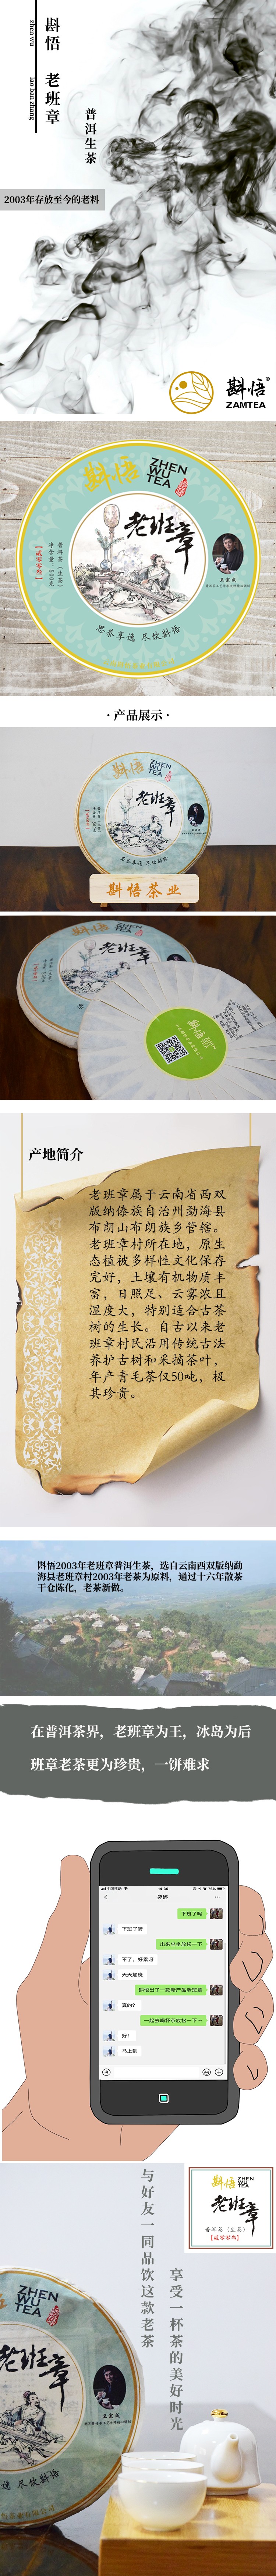 斟悟 老班章
zhen wu lao ban zhang
普洱生茶
2003年存放至今的老料
斟悟®
ZAMTEA
斟悟
ZHEN
WU
TEA
老班章
普洱茶（生茶）
净含量：500克
【贰零零叁】
王震威
思茶享逸 尽饮斟悟
· 产品展示 ·
斟悟
ZHEN
WU
TEA
老班章
思茶享逸 尽饮斟悟
斟悟茶业
斟悟
产地简介
老班章属于云南省西双
版纳傣族自治州勐海县
布朗山布朗族乡管辖。
老班章村所在地，原生
态植被多样性文化保存
完好，土壤有机物质丰
富，日照足、云雾浓且
湿度大，特别适合古茶
树的生长。自古以来老
班章村民沿用传统古法
养护古树和采摘茶叶，
年产青毛茶仅50吨，极
其珍贵。
斟悟2003年老班章普洱生茶，选自云南西双版纳勐
海县老班章村2003年老茶为原料，通过十六年散茶
干仓陈化，老茶新做。
在普洱茶界，老班章为王，冰岛为后
班章老茶更为珍贵，一饼难求
中国移动
14:38
婷婷
下班了吗
下班了呀
出来坐坐放松一下
不了，好累呀
天天加班
斟悟出了一款新产品老班章
真的？
一起去喝杯茶放松一下～
好！
马上到
与好友一同品饮这款老茶
享受一杯茶的美好时光
斟悟
ZHEN
WU
TEA
老班章
普洱茶（生茶）
【贰零零叁】
ZHEN
WU
TEA
老班章
王震威
尽饮斟悟